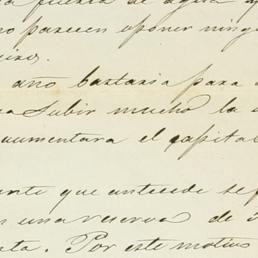 fuerza de agua
no parecen oponer ning
año bastaria para
subir mucho la
aumentara el capital
que antecede se
una reserva de
Por este motivo